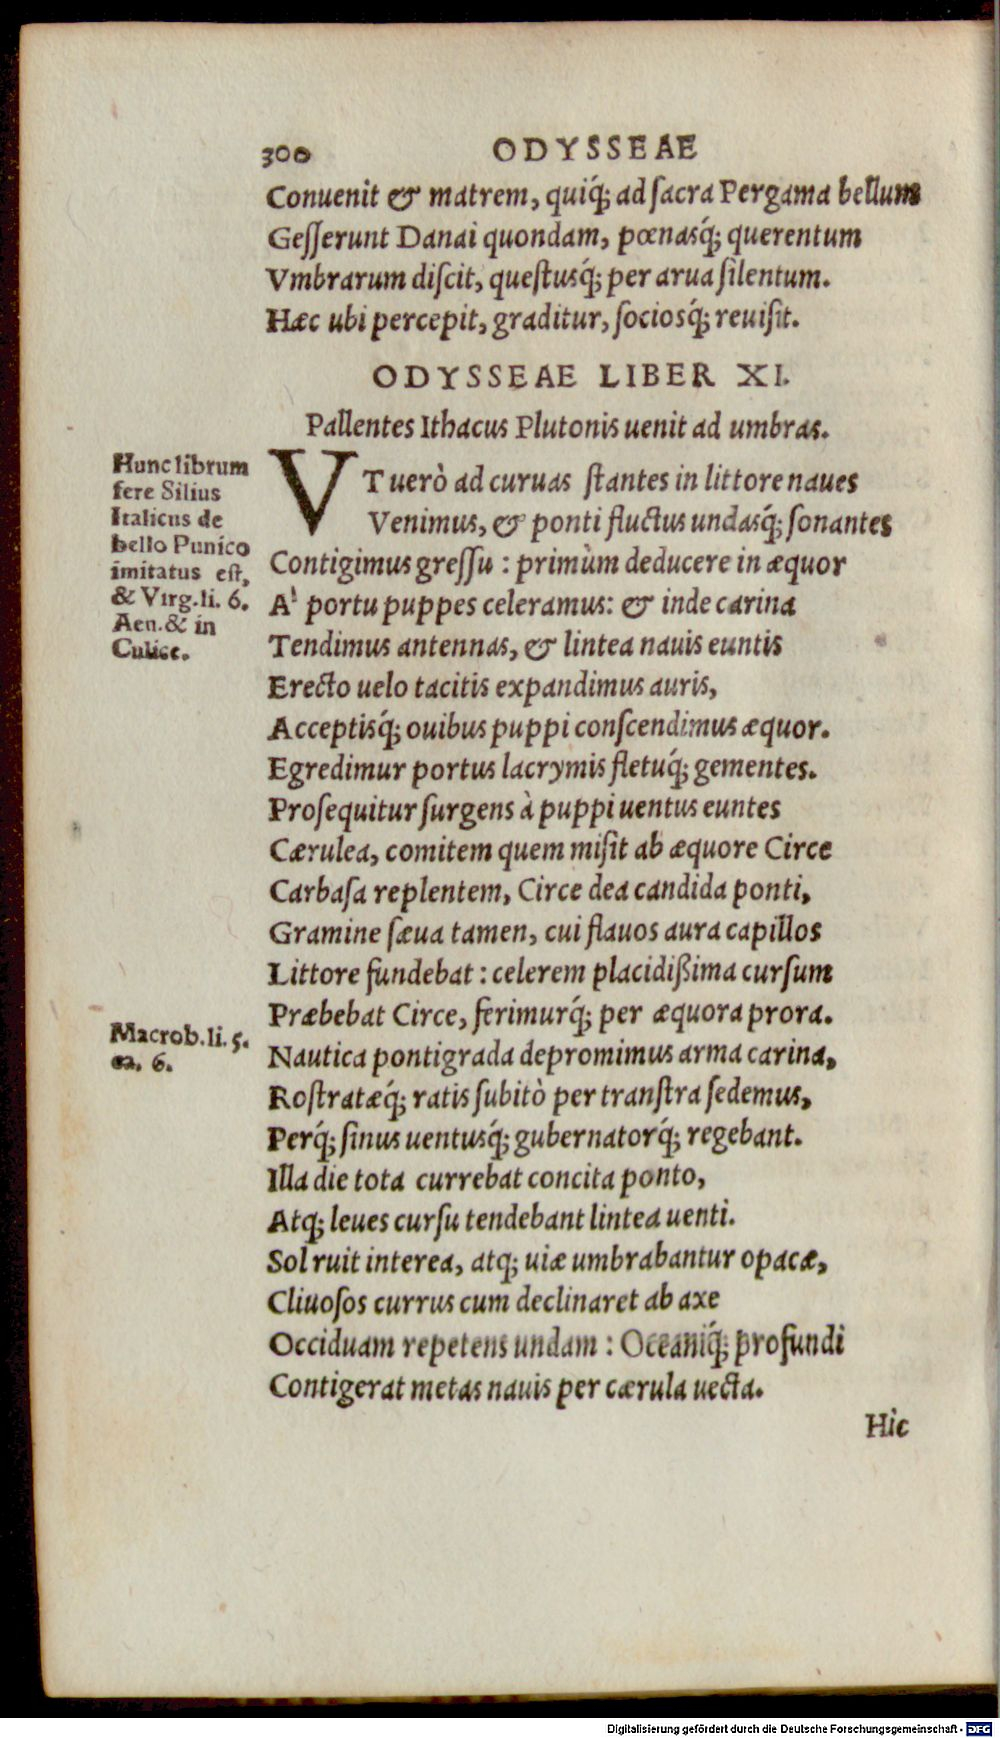 300 ODYSSEAE
Conuenit & matrem, quiq́; ad ſacra Pergama bellum
Geſſerunt Danai quondam, pœnasq́; querentum
Vmbrarum diſcit, queſtusq́; per arua ſilentum.
Hæc ubi percepit, graditur, ſociosq́; reuiſit.
ODYSSEAE LIBER XI.
Pallentes Ithacus Plutonis uenit ad umbras.
Hunc librum
fere Silius
Italicus de
bello Punico
imitatus est,
& Virg. li. 6.
Aen. & in
Culice.
VT uerò ad curuas ſtantes in littore naues
Venimus, & ponti fluctus undasq́; ſonantes
Contigimus greſſu : primùm deducere in æquor
A' portu puppes celeramus: & inde carina
Tendimus antennas, & lintea nauis euntis
Erecto uelo tacitis expandimus auris,
Acceptisq́; ouibus puppi conſcendimus æquor.
Egredimur portus lacrymis fletuq́; gementes.
Proſequitur ſurgens à puppi uentus euntes
Cærulea, comitem quem miſit ab æquore Circe
Carbaſa replentem, Circe dea candida ponti,
Gramine ſæua tamen, cui flauos aura capillos
Littore fundebat : celerem placidißima curſum
Præbebat Circe, ferimurq́; per æquora prora.
Macrob. li. 5.
ca. 6.
Nautica pontigrada depromimus arma carina,
Roſtratæq́; ratis ſubitò per tranſtra ſedemus,
Perq́; ſinus uentusq́; gubernatorq́; regebant.
Illa die tota currebat concita ponto,
Atq; leues curſu tendebant lintea uenti.
Sol ruit interea, atq; uiæ umbrabantur opacæ,
Cliuoſos currus cum declinaret ab axe
Occiduam repetens undam : Oceaniq́; profundi
Contigerat metas nauis per cærula uecta.
Hic
Digitalisierung gefördert durch die Deutsche Forschungsgemeinschaft - DFG